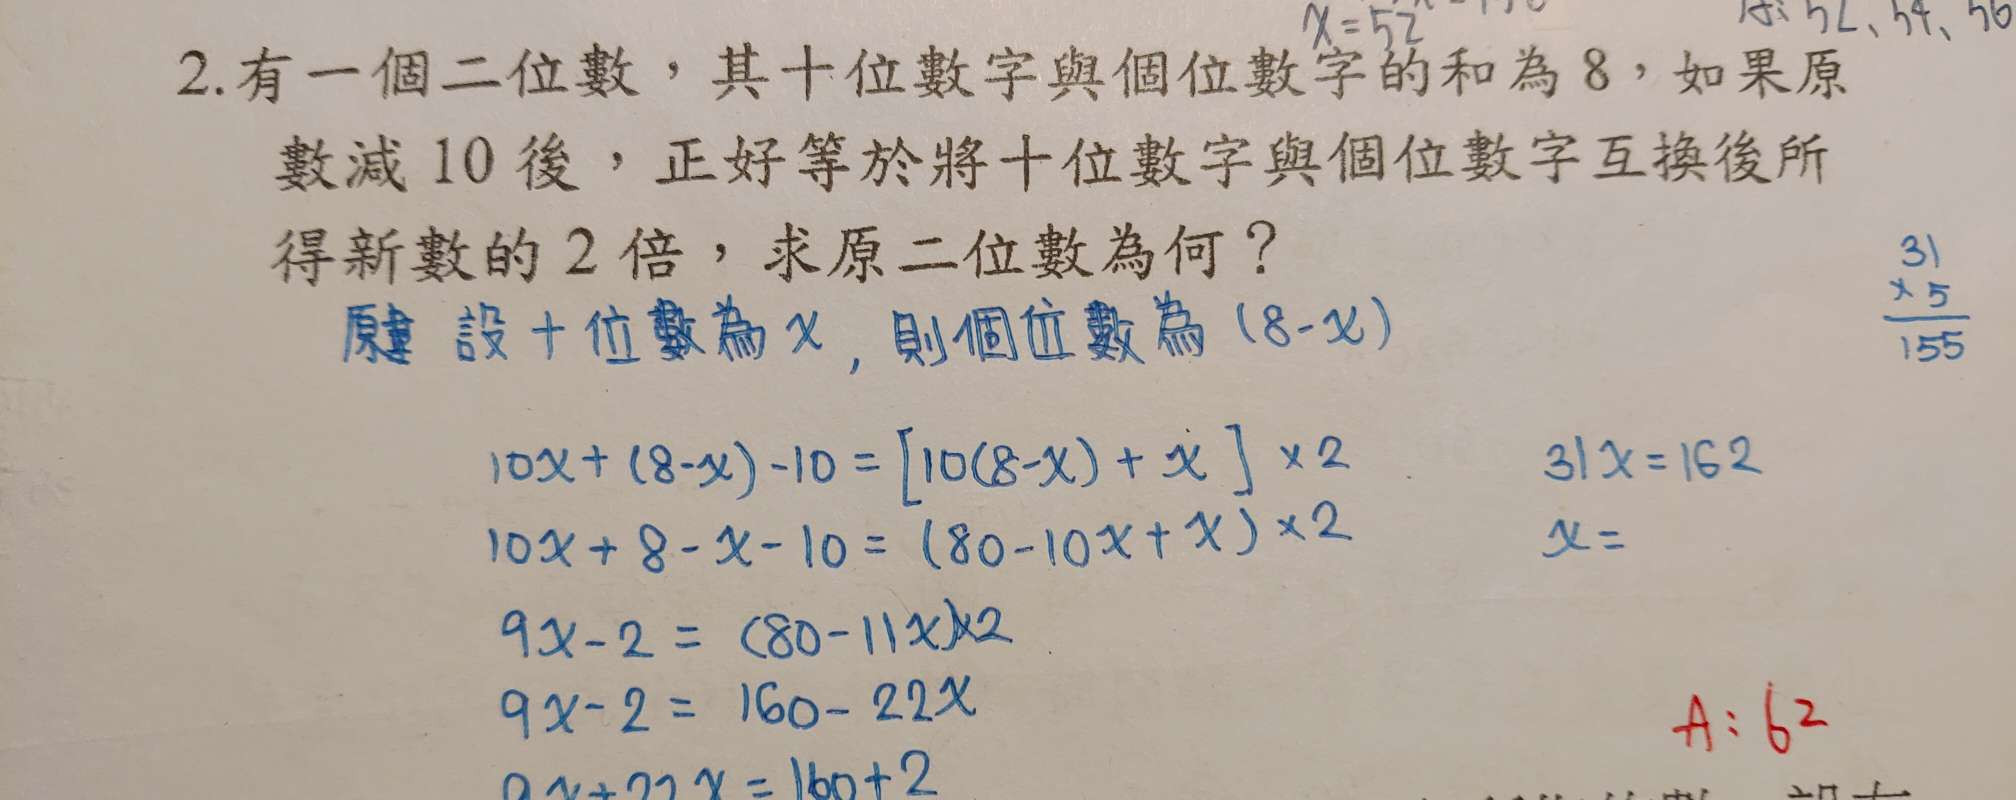 x=52
A: 52、54、56
2.有一個二位數，其十位數字與個位數字的和為 8，如果原
數減 10 後，正好等於將十位數字與個位數字互換後所
得新數的 2 倍，求原二位數為何？
原 設十位數為 x，則個位數為 (8-x)
31
×5
155
10x+(8-x)-10=[10(8-x)+x]×2
10x+8-x-10=(80-10x+x)×2
9x-2=(80-11x)×2
9x-2=160-22x
9x+22x=160+2
31x=162
x=
A:62